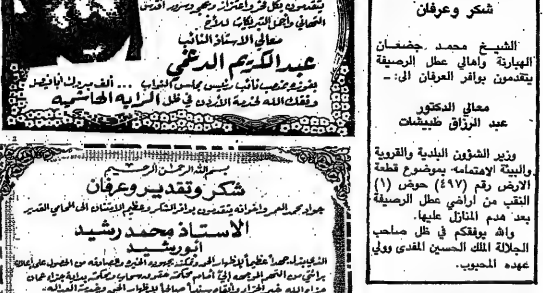 شكر وعرفان
الشيخ محمد جضعان
الهبارنة وأهالي عطل الرصيفة
يتقدمون بوافر العرفان الى: –
معالي الدكتور
عبد الرزاق طبيشات
وزير الشؤون البلدية والقروية
والبيئة لاهتمامه بموضوع قطعة
الارض رقم (٤٩٧) حوض (١)
النقب من اراضي عطل الرصيفة
بعد هدم المنازل عليها.
والله يوفقكم في ظل صاحب
الجلالة الملك الحسين المفدى وولي
عهده المحبوب.
يتقدمون بكل فخر واعتزاز
التهاني واجمل التبريكات للاخ
معالي الاستاذ النائب
عبد الكريم الدغمي
بفوزه بمنصب نائب رئيس مجلس النواب ... ألف مبروك
وفقك الله لخدمة الأردن في ظل الراية الهاشمية
بسم الله الرحمن الرحيم
شكر وتقدير وعرفان
واخوانه يتقدمون بوافر الشكر وعظيم الامتنان الى المحامي القدير
الاستاذ محمد رشيد
ابو رشيد